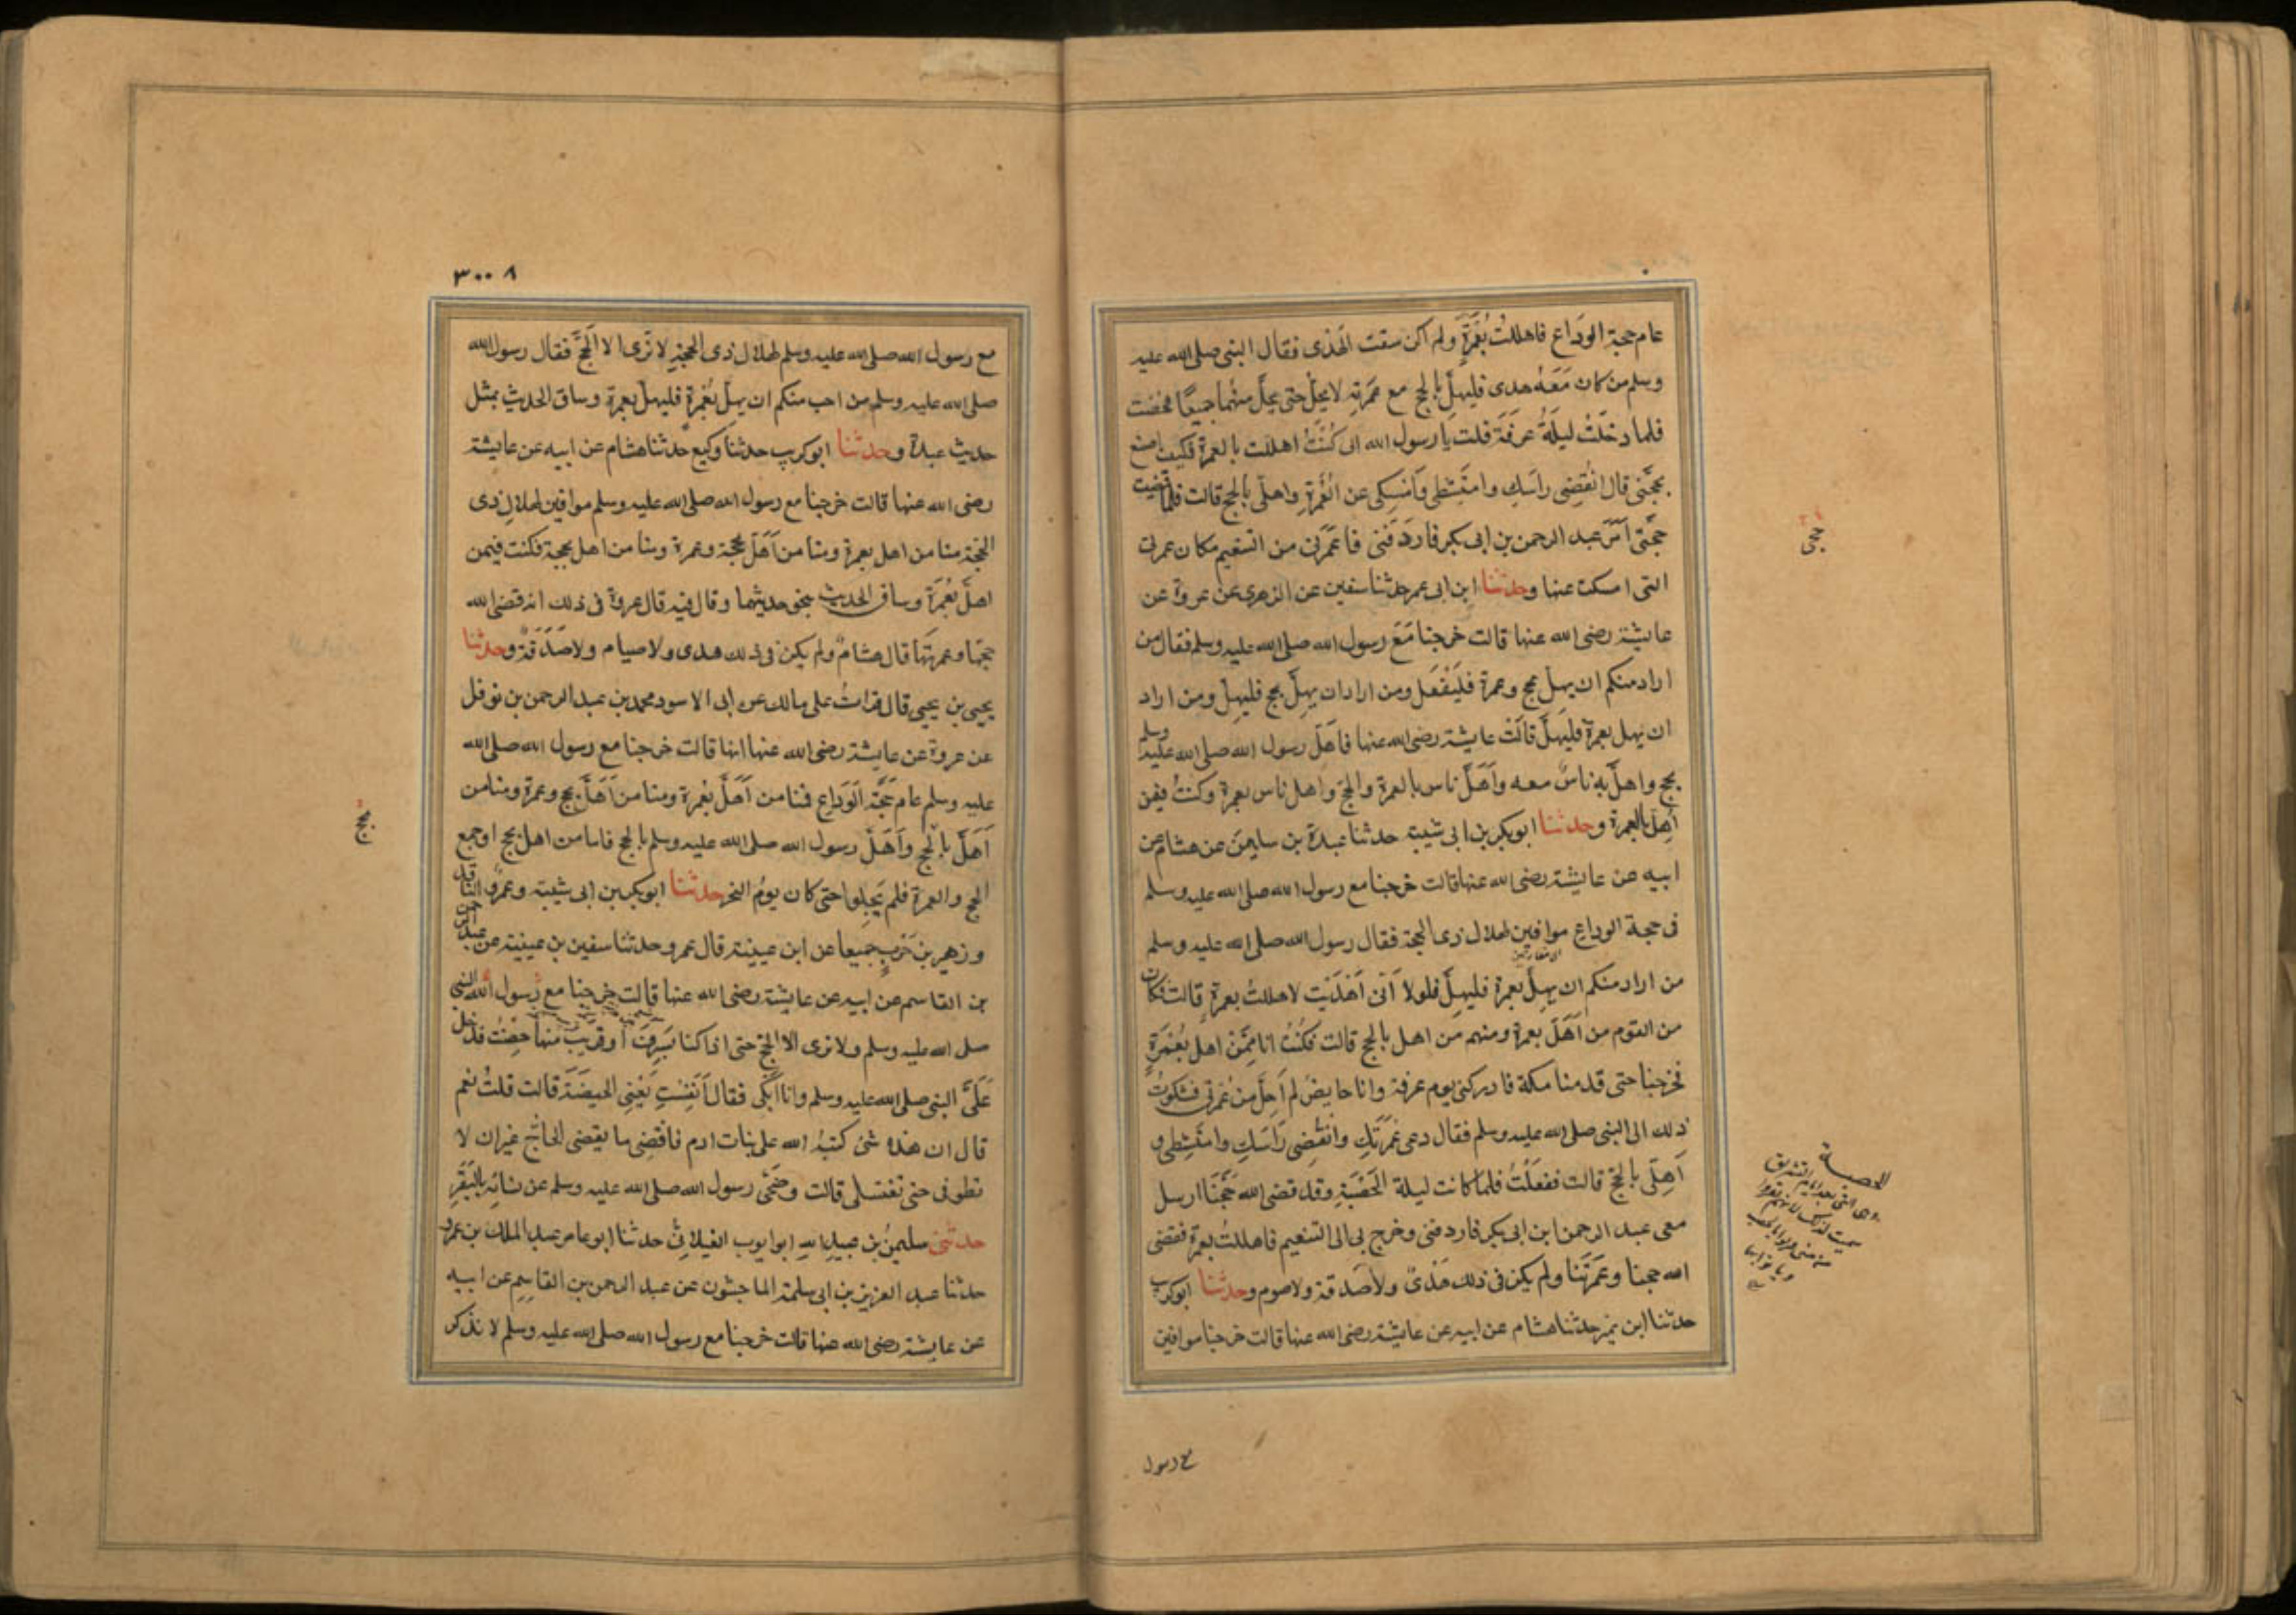 عام حجة الوداع فاهللت بعمرة ولم اكن سقت الهدى فقال النبى صلى الله عليه
وسلم من كان معه هدى فليهل بالحج مع عمرته لا يحل حتى يحل منهما جميعا فحضت
فلما دخلت ليلة عرفة قلت يا رسول الله انى كنت اهللت بالعمرة فكيف اصنع
بحجتى قال انقضى راسك وامتشطى وامسكى عن العمرة واهلى بالحج قالت فلما قضيت
حجتى امر عبد الرحمن بن ابى بكر فاردفنى فاعمرنى من التنعيم مكان عمرتى
التى امسكت عنها وحدثنا ابن ابى عمر حدثنا سفين عن الزهرى عن عروة عن
عايشة رضى الله عنها قالت خرجنا مع رسول الله صلى الله عليه وسلم فقال من
اراد منكم ان يهل بحج وعمرة فليفعل ومن اراد ان يهل بحج فليهل ومن اراد
ان يهل بعمرة فليهل قالت عايشة رضى الله عنها فاهل رسول الله صلى الله عليه وسلم
بحج واهل به ناس معه واهل ناس بالعمرة والحج واهل ناس بعمرة وكنت فيمن
اهل بالعمرة وحدثنا ابو بكر بن ابى شيبة حدثنا عبدة بن سليمن عن هشام عن
ابيه عن عايشة رضى الله عنها قالت خرجنا مع رسول الله صلى الله عليه وسلم
فى حجة الوداع موافين لهلال ذى الحجة فقال رسول الله صلى الله عليه وسلم
من اراد منكم ان يهل بعمرة فليهل فلولا انى اهديت لاهللت بعمرة قالت فكان
من القوم من اهل بعمرة ومنهم من اهل بالحج قالت فكنت انا ممن اهل بعمرة
فخرجنا حتى قدمنا مكة فادركنى يوم عرفة وانا حايض لم احل من عمرتى فشكوت
ذلك الى النبى صلى الله عليه وسلم فقال دعى عمرتك وانقضى راسك وامتشطى و
اهلى بالحج قالت ففعلت فلما كانت ليلة الحصبة وقد قضى الله حجنا ارسل
معى عبد الرحمن ابن ابى بكر فاردفنى وخرج بى الى التنعيم فاهللت بعمرة فقضى
الله حجنا وعمرتنا ولم يكن فى ذلك هدى ولا صدقة ولا صوم وحدثنا ابو كريب
حدثنا ابن نمير حدثنا هشام عن ابيه عن عايشة رضى الله عنها قالت خرجنا موافين
حجى
مع رسول
٣٠٠٨
مع رسول الله صلى الله عليه وسلم لهلال ذى الحجة لا نرى الا الحج فقال رسول الله
صلى الله عليه وسلم من احب منكم ان يهل بعمرة فليهل بعمرة وساق الحديث بمثل
حديث عبدة وحدثنا ابو كريب حدثنا وكيع حدثنا هشام عن ابيه عن عايشة
رضى الله عنها قالت خرجنا مع رسول الله صلى الله عليه وسلم موافين لهلال ذى
الحجة منا من اهل بعمرة ومنا من اهل بحجة وعمرة ومنا من اهل بحجة فكنت فيمن
اهل بعمرة وساق الحديث بنحو حديثهما وقال فيه قال عروة فى ذلك انه قضى الله
حجها وعمرتها قال هشام ولم يكن فى ذلك هدى ولا صيام ولا صدقة وحدثنا
يحيى بن يحيى قال قرات على مالك عن ابى الاسود محمد بن عبد الرحمن بن نوفل
عن عروة عن عايشة رضى الله عنها انها قالت خرجنا مع رسول الله صلى الله
عليه وسلم عام حجة الوداع فمنا من اهل بعمرة ومنا من اهل بحج وعمرة ومنا من
اهل بالحج واهل رسول الله صلى الله عليه وسلم بالحج فاما من اهل بحج او جمع
الحج والعمرة فلم يحلوا حتى كان يوم النحر حدثنا ابو بكر بن ابى شيبة وعمرو الناقد
وزهير بن حرب جميعا عن ابن عيينة قال عمرو حدثنا سفين بن عيينة عن عبد الرحمن
بن القاسم عن ابيه عن عايشة رضى الله عنها قالت خرجنا مع رسول الله النبى
صلى الله عليه وسلم ولا نرى الا الحج حتى اذا كنا بسرف او قريب منها حضت فدخل
على النبى صلى الله عليه وسلم وانا ابكى فقال انفست يعنى الحيضة قالت قلت نعم
قال ان هذه شئ كتبه الله على بنات ادم فاقضى ما يقضى الحاج غير ان لا
تطوفى حتى تغتسلى قالت وضحى رسول الله صلى الله عليه وسلم عن نسائه بالبقر
حدثنى سليمن بن عبيد الله ابو ايوب الغيلانى حدثنا ابو عامر عبد الملك بن عمرو
حدثنا عبد العزيز بن ابى سلمة الماجشون عن عبد الرحمن بن القاسم عن ابيه
عن عايشة رضى الله عنها قالت خرجنا مع رسول الله صلى الله عليه وسلم لا نذكر
بحج